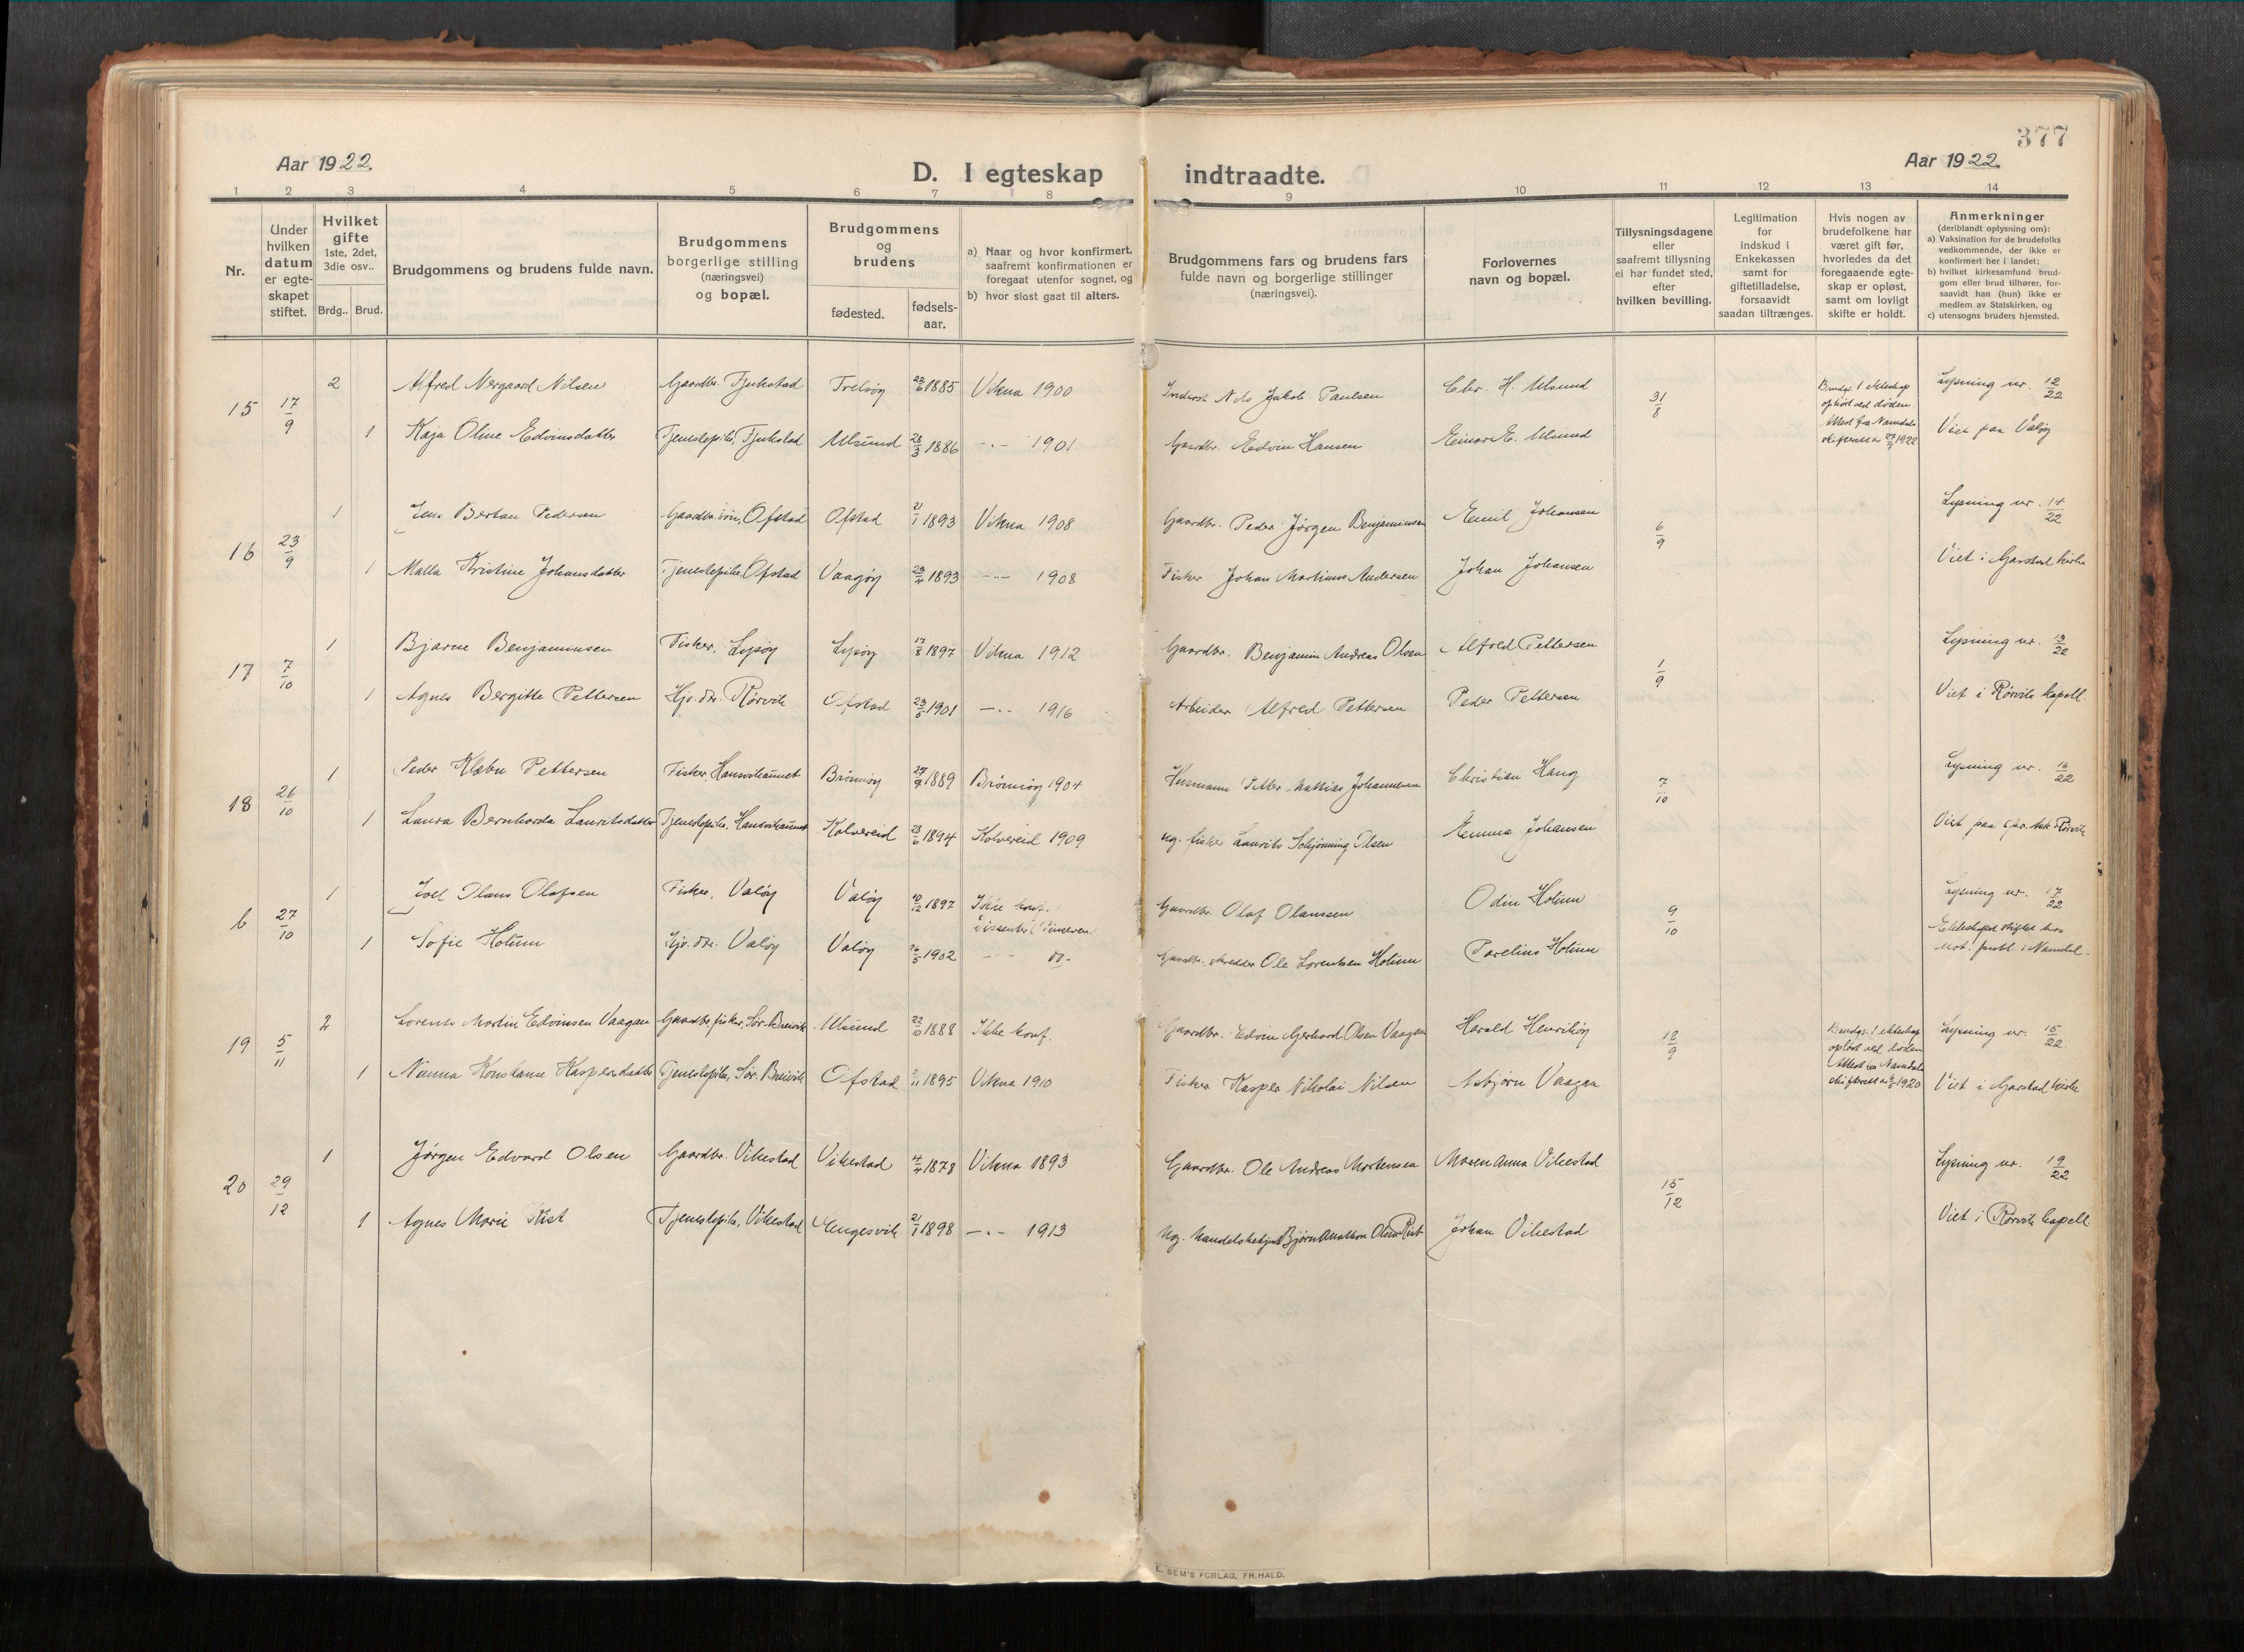 377
Aar 1922.
Aar 1922.
D. I egteskap indtraadte.
1 2 3 4 5 6 7 8 9 10 11 12 13 14
Nr.
Under hvilken datum er egte-skapet stiftet.
Hvilket gifte 1ste, 2det, 3die osv..
Brdg.. Brud.
Brudgommens og brudens fulde navn.
Brudgommens borgerlige stilling (næringsvei) og bopæl.
Brudgommens og brudens
fødested.
fødsels-aar.
a) Naar og hvor konfirmert, saafremt konfirmationen er foregaat utenfor sognet, og
b) hvor sidst gaat til alters.
Brudgommens fars og brudens fars fulde navn og borgerlige stillinger (næringsvei).
Forlovernes navn og bopæl.
Tillysningsdagene eller saafremt tillysning ei har fundet sted, efter hvilken bevilling.
Legitimation for indskud i Enkekassen samt for giftetilladelse, forsaavidt saadan tiltrænges.
Hvis nogen av brudefolkene har været gift før, hvorledes da det foregaaende egte-skap er opløst, samt om lovligt skifte er holdt.
Anmerkninger (deriblandt oplysning om):
a) Vaksination for de brudefolks vedkommende, der ikke er konfirmert her i landet;
b) hvilket kirkesamfund brud-gom eller brud tilhører, for-saavidt han (hun) ikke er medlem av Statskirken, og
c) utensogns bruders hjemsted.
2 Alfred Nergaard Nilsen Gaardbr. Fjukstad Trelsøy 23/6 1885 Vikna 1900 Inderst Nils Jakob Paulsen Chr. H. Ulsund Brudgr. 1 ekteskap Lysning nr. 12/22
15 17/9 31/8 ophørt ved døden.
1 Kaja Oline Edvinsdatter Tjenestepike, Fjukstad Ulsund 28/3 1886 -"- 1901 Gaardbr. Edvin Hansen Einar E. Ulsund Attest fra Namdals skifterett av 1922 Viet paa Valøy
1 Jens Bertan Pedersen Gaardbr.søn, Ofstad Ofstad 21/1 1893 Vikna 1908 Gaardbr. Peder Jørgen Benjaminsen Emil Johansen Lysning nr. 14/22
16 23/9 6/9
1 Malla Kristine Johansdatter Tjenestepike, Ofstad Vaagøy 23/4 1893 -"- 1908 Fisker Johan Martinus Andersen Johan Johansen Viet i Garstad kirke
1 Bjarne Benjaminsen Fisker, Lysøy Lysøy 17/8 1897 Vikna 1912 Gaardbr. Benjamin Andreas Olsen Alfred Pettersen Lysning nr. 13/22
17 7/10 1/9
1 Agnes Bergitte Pettersen Hjv. dtr. Rørvik Ofstad 23/5 1901 -"- 1916 Arbeider Alfred Pettersen Peder Pettersen Viet i Rørvik kapell
1 Peder Klæbu Pettersen Fisker, Hansvikaunet Brønnøy 27/9 1889 Brønnøy 1904 Husmann Petter Mattias Johannesen Christian Haug Lysning nr. 16/22
18 26/10 7/10
1 Laura Bernharda Lauritsdatter Tjenestepike, Hansvikaunet Kolvereid 28/6 1894 Kolvereid 1909 ug. fisker Laurits Schjønning Olsen Emma Johansen Viet paa Rørvik
1 Joel Olaus Olafsen Fisker, Valøy Valøy 10/12 1897 Ikke konf. Gaardbr. Olaf Olaussen Odin Holum Lysning nr. 17/22
6 27/10 dissenter (Pinseven. 9/10 Ekteskapet stiftet hos
1 Sofie Holum Hjv. dtr. Valøy Valøy 16/5 1902 - - do- Gaardbr. skredder Ole Lorentsen Holum Parelius Holum not. publ. i Namdal.
2 Lorents Martin Edvinsen Vaagan Gaardbr. fisker, Sør-Breivik Ulsund 22/10 1888 Ikke konf. Gaardbr. Edvin Gerhard Olsen Vaagan Harald Henrikøy Brudgr. 1 ekteskap Lysning nr. 15/22.
19 5/11 18/9 opløst ved døden
1 Nanna Konstanse Kaspersdatter Tjenestepike, Sør-Breivik Ofstad /11 1895 Vikna 1910 Fisker Kasper Nikolai Nilsen Asbjørn Vaagan Attest fra Namdals skifterett av 1920 Viet i Garstad kirke
1 Jørgen Edvard Olsen Gaardbr. Vikestad Vikestad 4/4 1878 Vikna 1893 Gaardbr. Ole Andreas Mortensen Maren Anna Vikestad Lysning nr. 19/22
20 29/12 15/12
1 Agnes Marie Rist Tjenestepike, Vikestad Engesvik 21/1 1898 -"- 1913 ug. handelsbetjent Bjørn Olsen Rist Johan Vikestad Viet i Rørvik kapell
E. SEM'S FORLAG, FR.HALD.